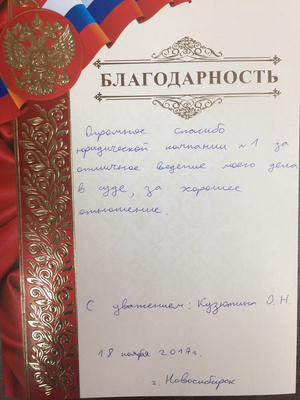 БЛАГОДАРНОСТЬ
Огромное спасибо
юридической компании №1 за
отличное ведение моего дела
в суде, за хорошее
отношение.
С уважением: Кузютина О.Н.
18 ноября 2017г.
г. Новосибирск